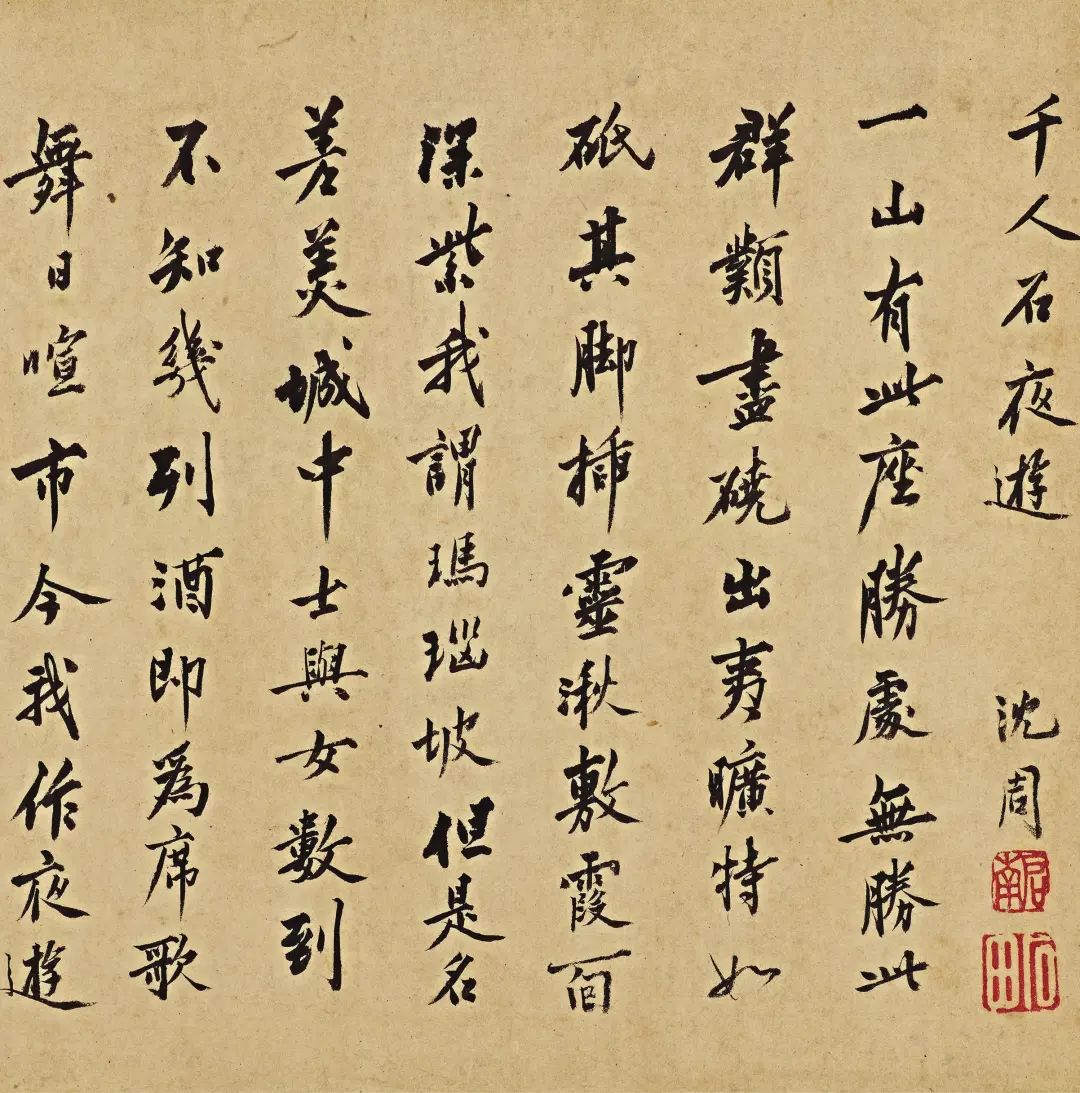 千人石夜遊 沈周
啟南
石田
一山有此座勝處無勝此
群類盡磽出夷曠特如
砥其脚插靈湫敷霞面
深紫我謂瑪瑙坡但是名
差美城中士與女數到
不知幾列酒即爲席歌
舞日喧市今我作夜遊